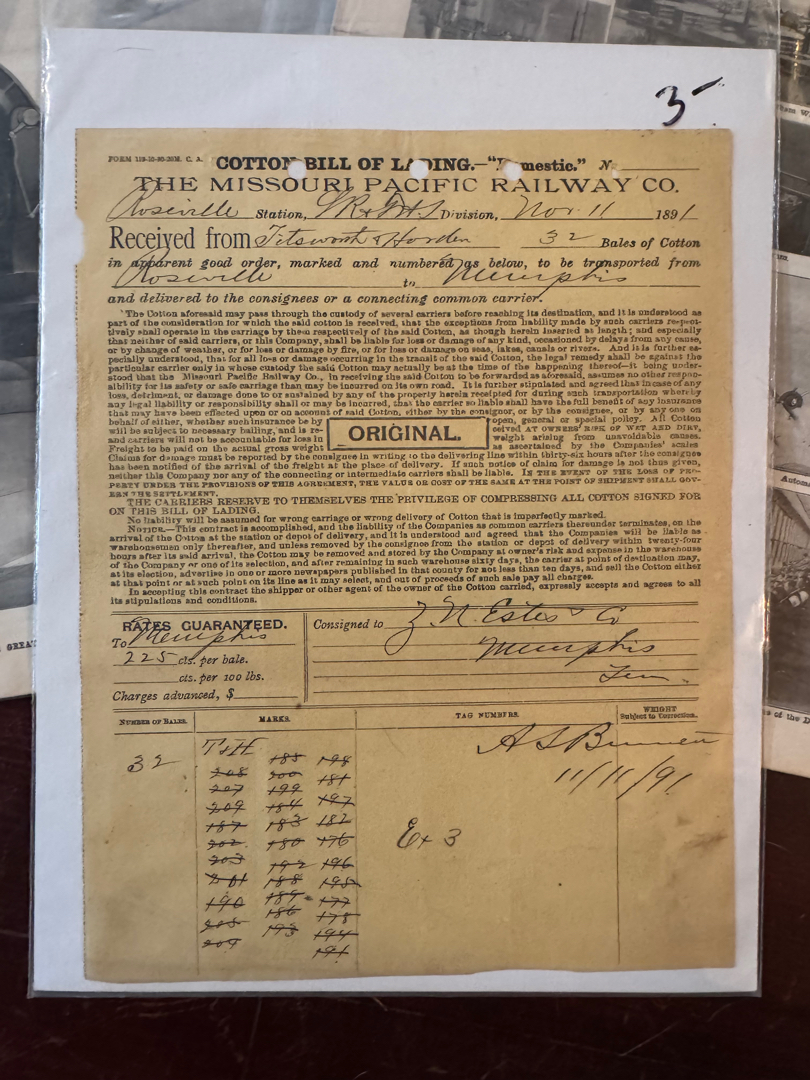 3
FORM 119-10-90-30M. C. A. COTTON BILL OF LADING.—"Domestic." N
THE MISSOURI PACIFIC RAILWAY CO.
Roseville Station, Division, Nov. 11 1891
Received from Titsworth & Horden 32 Bales of Cotton
in apparent good order, marked and numbered as below, to be transported from
Roseville to Memphis
and delivered to the consignees or a connecting common carrier.
The Cotton aforesaid may pass through the custody of several carriers before reaching its destination, and it is understood as
part of the consideration for which the said cotton is received, that the exceptions from liability made by such carriers respect-
ively shall operate in the carriage by them respectively of the said Cotton, as though herein inserted at length; and especially
that neither of said carriers, or this Company, shall be liable for loss or damage of any kind, occasioned by delays from any cause,
or by change of weather, or for loss or damage by fire, or for loss or damage on seas, lakes, canals or rivers. And it is further es-
pecially understood, that for all loss or damage occurring in the transit of the said Cotton, the legal remedy shall be against the
particular carrier only in whose custody the said Cotton may actually be at the time of the happening thereof—it being under-
stood that the Missouri Pacific Railway Co., in receiving the said Cotton to be forwarded as aforesaid, assumes no other respon-
sibility for its safety or safe carriage than may be incurred on its own road. It is further stipulated and agreed that in case of any
loss, detriment, or damage done to or sustained by any of the property herein receipted for during such transportation whereby
any legal liability or responsibility shall or may be incurred, that the carrier so liable shall have the full benefit of any insurance
that may have been effected upon or on account of said Cotton, either by the consignor, or by the consignee, or by any one on
behalf of either, whether such insurance be by open, general or special policy. All Cotton
will be subject to necessary bailing, and is re- ceived AT OWNERS' RISK OF WET AND DIRT,
and carriers will not be accountable for loss in weight arising from unavoidable causes.
Freight to be paid on the actual gross weight as ascertained by the Companies' scales
ORIGINAL.
Claims for damage must be reported by the consignee in writing to the delivering line within thirty-six hours after the consignee
has been notified of the arrival of the freight at the place of delivery. If such notice of claim for damage is not thus given,
neither this Company nor any of the connecting or intermediate carriers shall be liable. IN THE EVENT OF THE LOSS OF PRO-
PERTY UNDER THE PROVISIONS OF THIS AGREEMENT, THE VALUE OR COST OF THE SAME AT THE POINT OF SHIPMENT SHALL GOV-
ERN THE SETTLEMENT.
THE CARRIERS RESERVE TO THEMSELVES THE PRIVILEGE OF COMPRESSING ALL COTTON SIGNED FOR
ON THIS BILL OF LADING.
No liability will be assumed for wrong carriage or wrong delivery of Cotton that is imperfectly marked.
NOTICE.—This contract is accomplished, and the liability of the Companies as common carriers thereunder terminates, on the
arrival of the Cotton at the station or depot of delivery, and it is understood and agreed that the Companies will be liable as
warehousemen only thereafter, and unless removed by the consignee from the station or depot of delivery within twenty-four
hours after its said arrival, the Cotton may be removed and stored by the Company at owner's risk and expense in the warehouse
of the Company or one of its selection, and after remaining in such warehouse sixty days, the carrier at point of destination may,
at its election, advertise in one or more newspapers published in that county for not less than ten days, and sell the Cotton either
at that point or at such point on its line as it may select, and out of proceeds of such sale pay all charges.
In accepting this contract the shipper or other agent of the owner of the Cotton carried, expressly accepts and agrees to all
its stipulations and conditions.
RATES GUARANTEED. Consigned to Z. N. Estes & Co
To Memphis Memphis
225 cts. per bale. Ten
cts. per 100 lbs.
Charges advanced, $
NUMBER OF BALES. MARKS. TAG NUMBERS. WEIGHT
Subject to Correction.
32 T&H A S Bennett
11/11/91
188 198
208 200 181
207 199 197
209 184 182
187 183 176
202 180 196
203 192 195
201 188 177
190 189 178
205 186 194
209 193 191
Ex 3